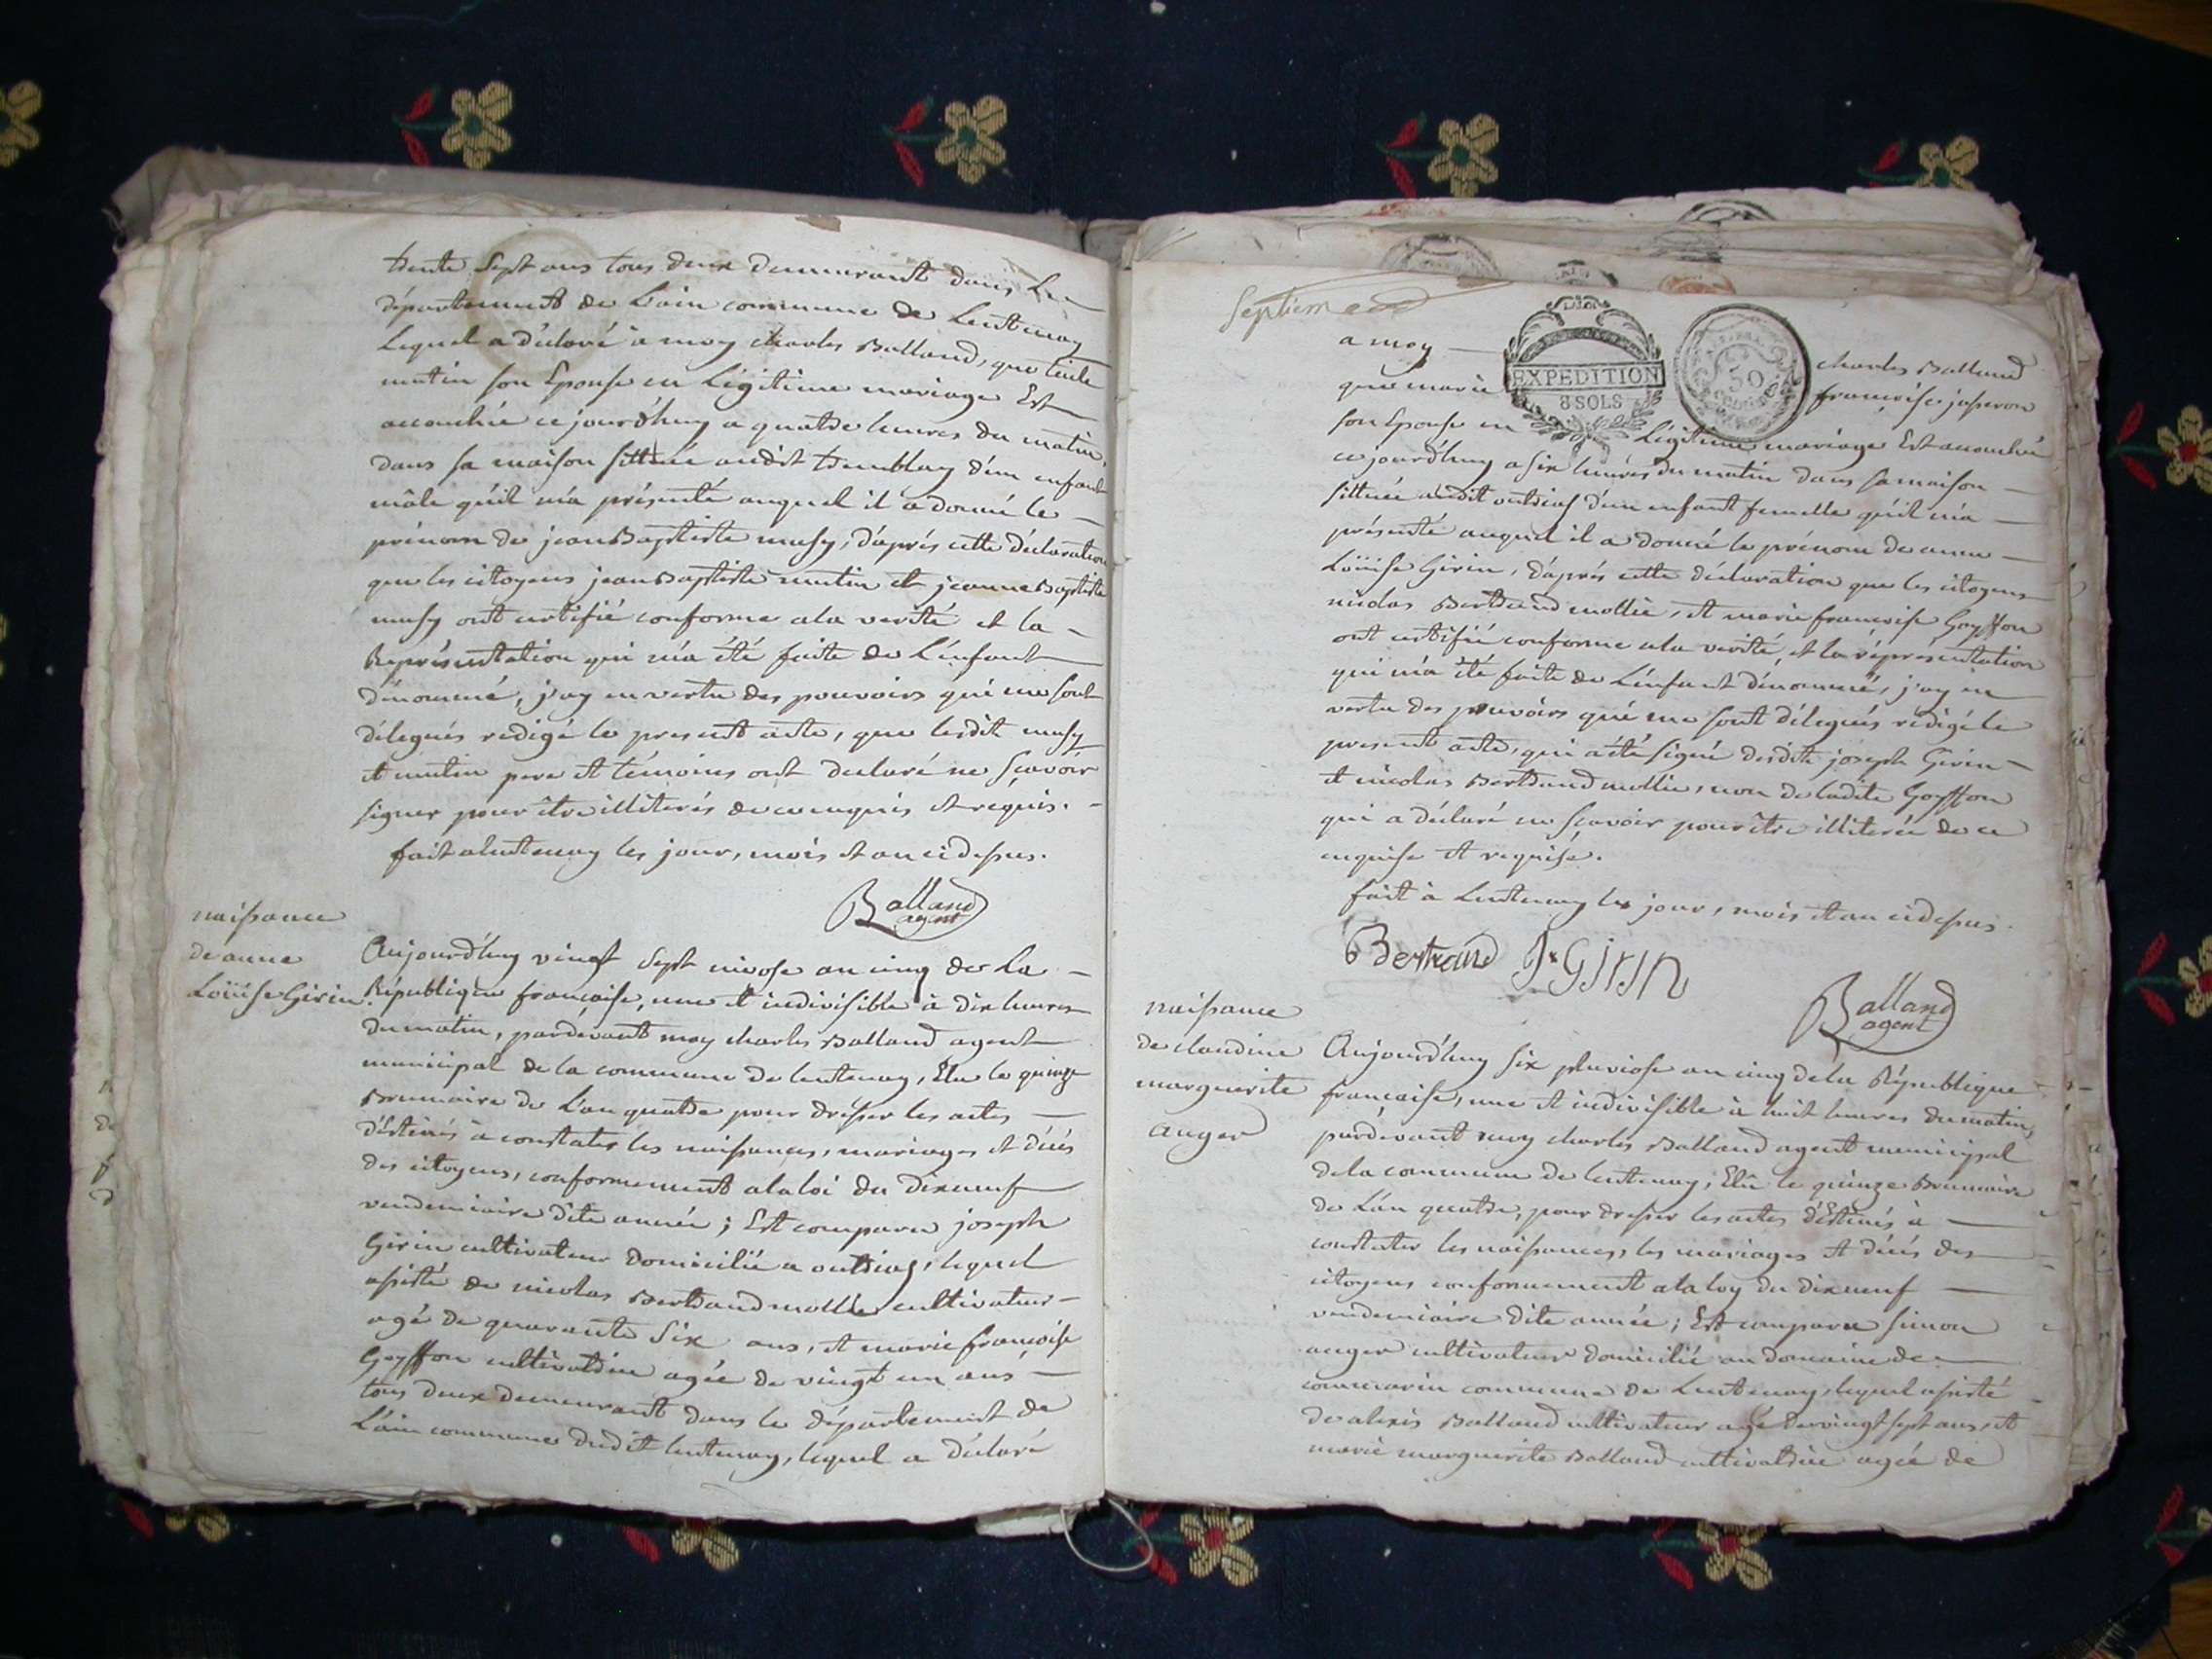 trente Sept ans tous deux demeurant dans Le
département de L'ain commune de Lentenay
Lequel a déclaré à moy charles Balland, que
mutin son Epouse en Légitime mariage Est
accouchée ce jourd'huy a quatre heures du matin,
dans sa maison sittuée audit tremblay d'un enfant
mâle qu'il m'a présenté auquel il a donné le
prénom de jean Baptiste musy, d'aprés cette déclaration
que les citoyens jean Baptiste mutin et jeanne Baptiste
musy ont certifié conforme a la verité et la
Représentation qui m'a été faite de L'enfant
dénommé, j'ay en vertu des pouvoirs qui me sont
délegués redigé le present acte, que lesdit musy
et mutin pere et témoins ont declaré ne sçavoir
signer pour être illiterés de ce enquis et requis.
fait a lentenay les jour, mois et an ci depus.
Balland
agent
naissance
de anne
Loüise Girin.
Aujourd'huy vingt Sept nivose an cinq de La
République francaise, une et indivisible à dix heures
du matin, pardevant moy charles Balland agent
municipal de la commune de lentenay, Elu le quinze
Brumaire de L'an quatre pour drésser les actes
déstinés à constater les naissances, mariages et décés
des citoyens, conformement a la loi du dixneuf
vendemiaire dite année; Est comparu joseph
Girin cultivateur domicilié a outriaz, lequel
assisté de nicolas Bertrand mollie cultivateur
agé de quarante Six ans, et marie françoise
Goyffon cultivatrice agée de vingt un ans
tous deux demeurant dans le département de
L'ain commune dudit lentenay, lequel a déclaré
Septieme
a moy charles Balland
EXPEDITION
8 SOLS
50
que marie françoise josseron
son Epouse en Légitime mariage Est accouchée
ce jourd'huy a six heures du matin dans sa maison
sittuée audit outriaz d'un enfant femelle qu'il m'a
présenté auquel il a donné le prénom de anne
Loüise Girin, d'aprés cette déclaration que les citoyens
nicolas Bertrand mollie, et marie francoise Goyffon
ont certifié conforme a la verité, et la représentation
qui m'a été faite de L'enfant dénommé, j'ay en
vertu des pouvoirs qui me sont délegués rédigé le
present acte, qui a été signé desdits joseph Girin
et nicolas Bertrand mollie, non de ladite Goyffon
qui a déclaré ne sçavoir pour être illiterée de ce
enquise et requise.
fait à Lentenay les jour, mois et an ci depus.
Bertrand Jh GIRIN
Balland
agent
naissance
de claudine
marguerite
auger
Aujourd'huy six pluviose an cinq de la République
française, une et indivisible à huit heures du matin,
pardevant moy charles Balland agent municipal
de la commune de lentenay, Elû le quinze Brumaire
de L'an quatre, pour drésser les actes déstinés à
constater les naissances, les mariages et décés des
citoyens conformement a la loy du dixneuf
vendemiaire dite année; Est comparu simon
auger cultivateur domicilié au domaine de
commune de Lentenay, lequel assisté
de alexis Balland cultivateur agé de vingt sept ans, et
marie marguerite Balland cultivatrice agée de